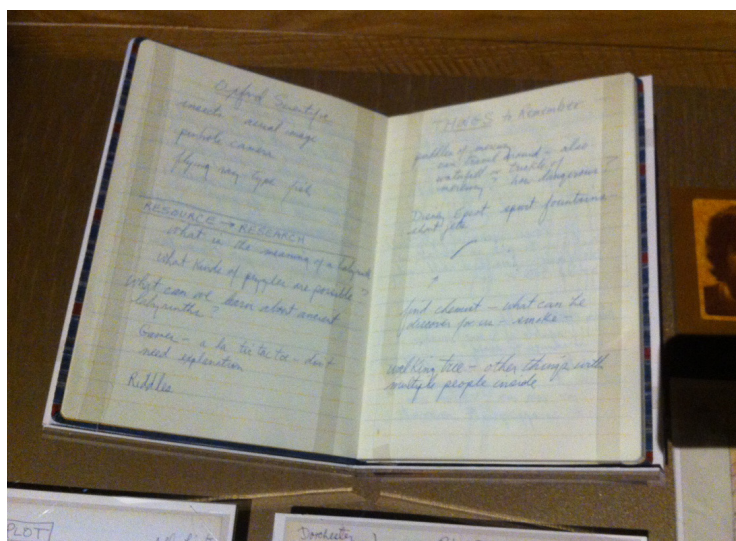 Oxford Scientific
insects aerial image
pinhole camera
flying ray type fish
RESOURCE → RESEARCH
What is the meaning of a labyrinth
What kinds of puzzles are possible?
What can we learn about ancient
labyrinths?
Games - a la tic tac toe - don't
need explanation
Riddles
THINGS to Remember
puddles of mercury
can travel around - also
waterfall - trickle of
mercury? how dangerous?
Disney Epcot spurt fountains
short jets
find chemist - what can he
discover for us - smoke -
walking tree - other things with
multiple people inside
PLOT
Dorchester